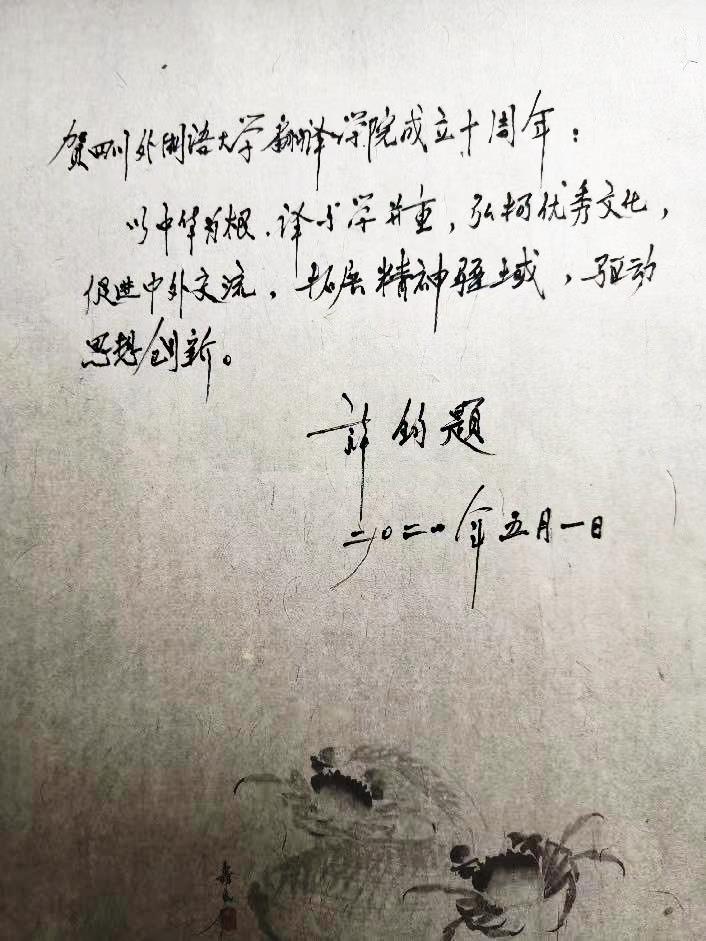 贺四川外国语大学翻译学院成立十周年：
以中华为根，译与学并重，弘扬优秀文化，
促进中外交流，拓展精神疆域，驱动
思想创新。
许钧题
二〇二〇年五月一日